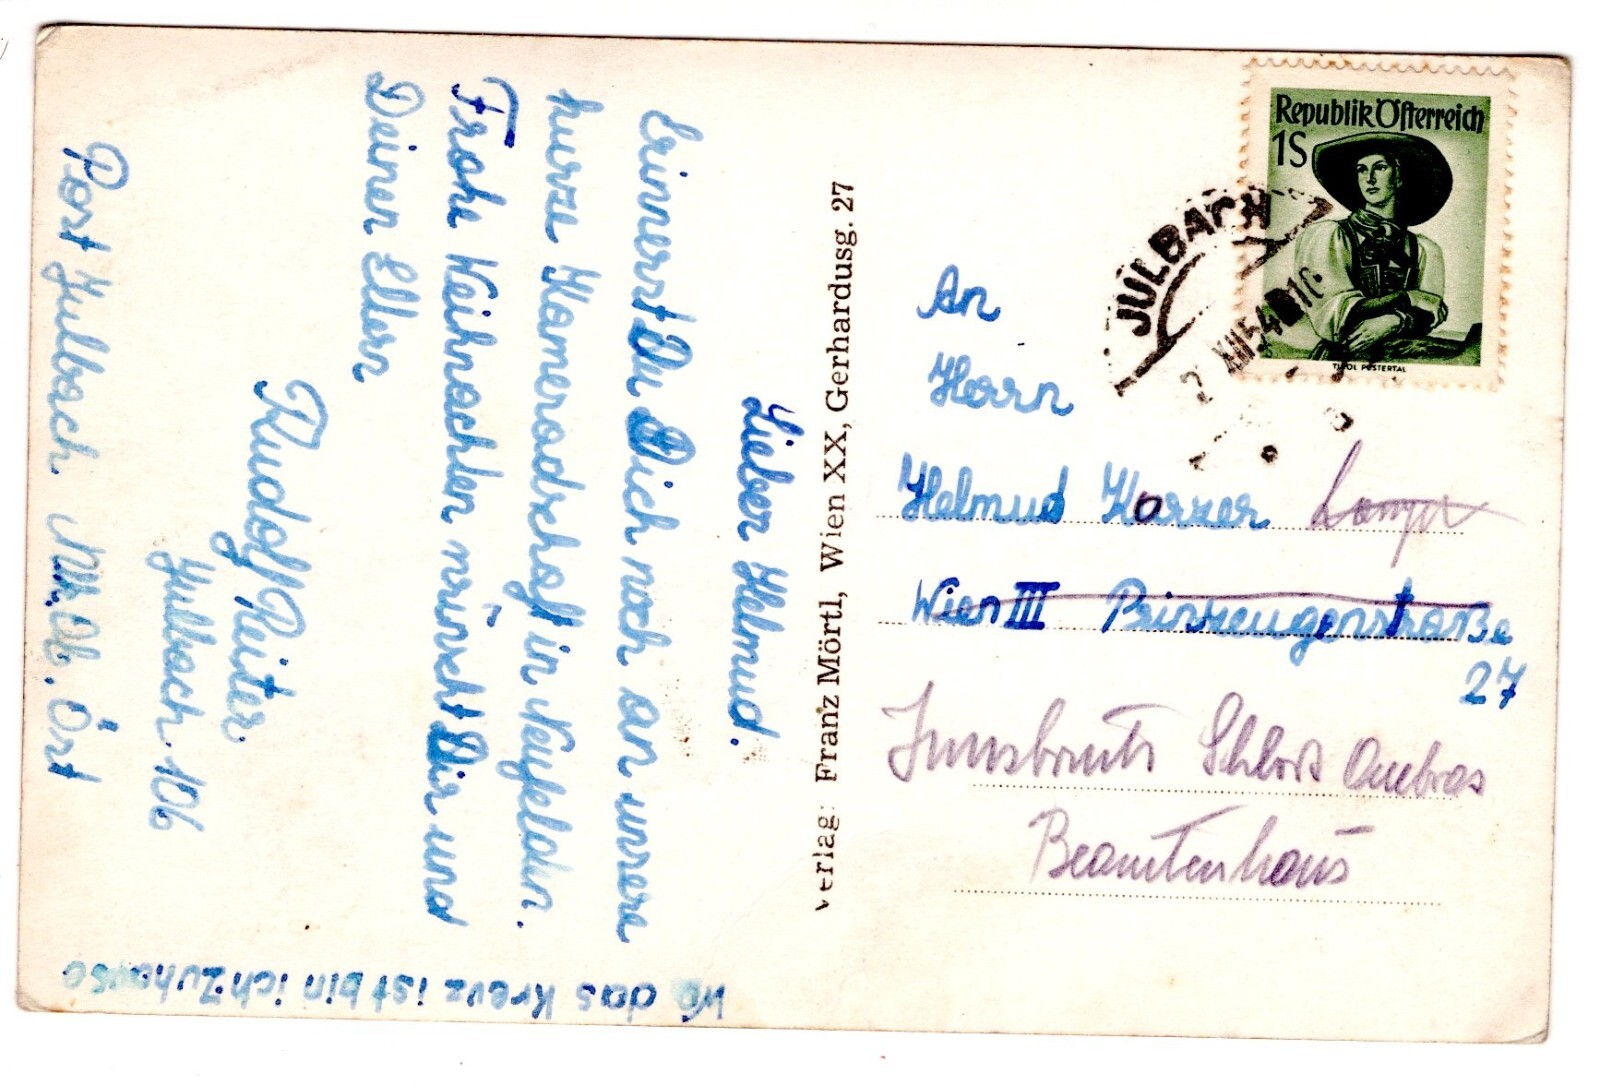 Lieber Helmud.
Erinnerst Du Dich noch an unsere
kurze Kameradschaft in Neufelden.
Frohe Weihnachten wünscht Dir und
Deinen Eltern
Rudolf Reiter
Julbach 106
Post Julbach Mkr. Ob. Öst
Wo das Kreuz ist bin ich Zuhause
Verlag: Franz Mörtl, Wien XX, Gerhardusg. 27
Republik Österreich
1S
TIROL PUSTERTAL
JULBACH
XII 54
An
Herrn
Helmud Harrer
Wien III Prinzeugenstraße
27
Innsbruck Schloß Ambras
Beamtenhaus